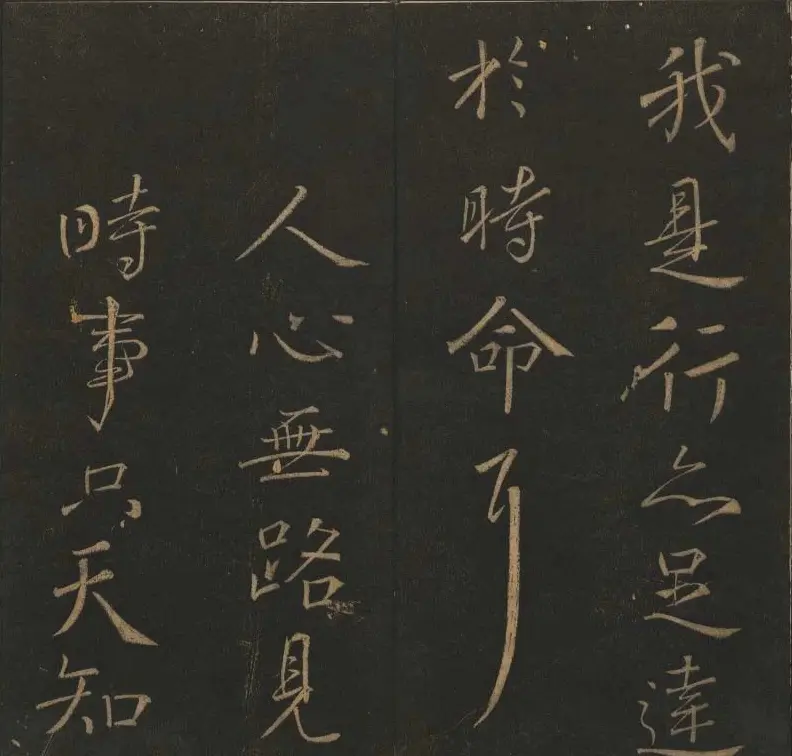 我是行亦足達
於時命耳
人心無路見
時事只天知